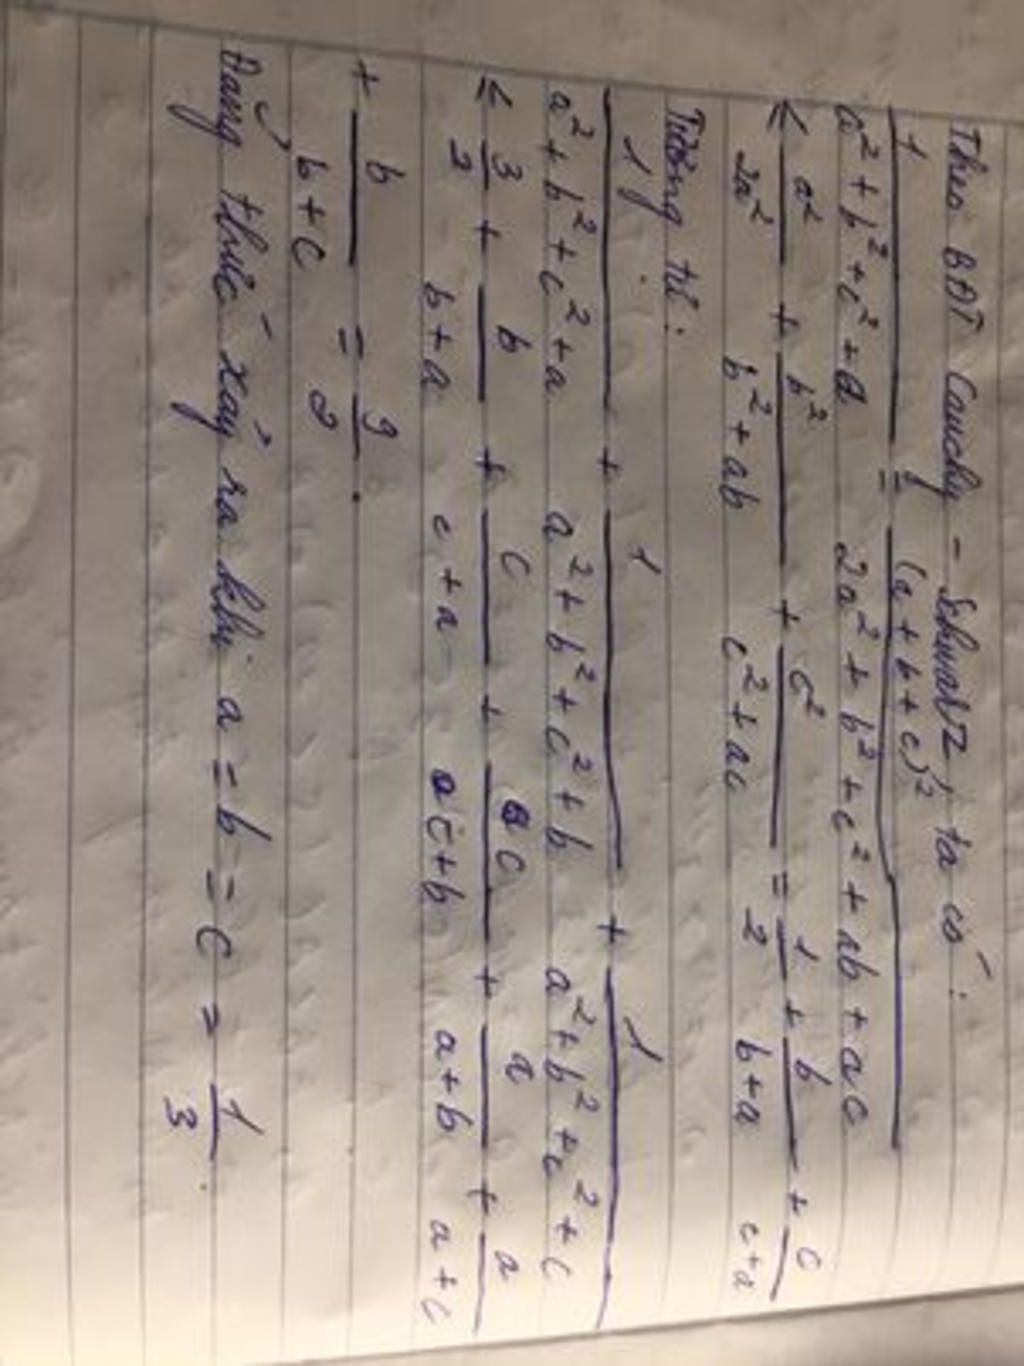 Theo BĐT Cauchy - Schwarz, ta có:
1/(a²+b²+c²+a) = (a+b+c)²/(2a²+b²+c²+ab+ac)
≤ a²/2a² + b²/(b²+ab) + c²/(c²+ac) = 1/2 + b/(b+a) + c/(c+a)
Tương tự:
1/(a²+b²+c²+a) + 1/(a²+b²+c²+b) + 1/(a²+b²+c²+c)
≤ 3/2 + b/(b+a) + c/(c+a) + c/(c+b) + a/(a+b) + a/(a+c)
+ b/(b+c) = 9/2.
Đẳng thức xảy ra khi a = b = c = 1/3.